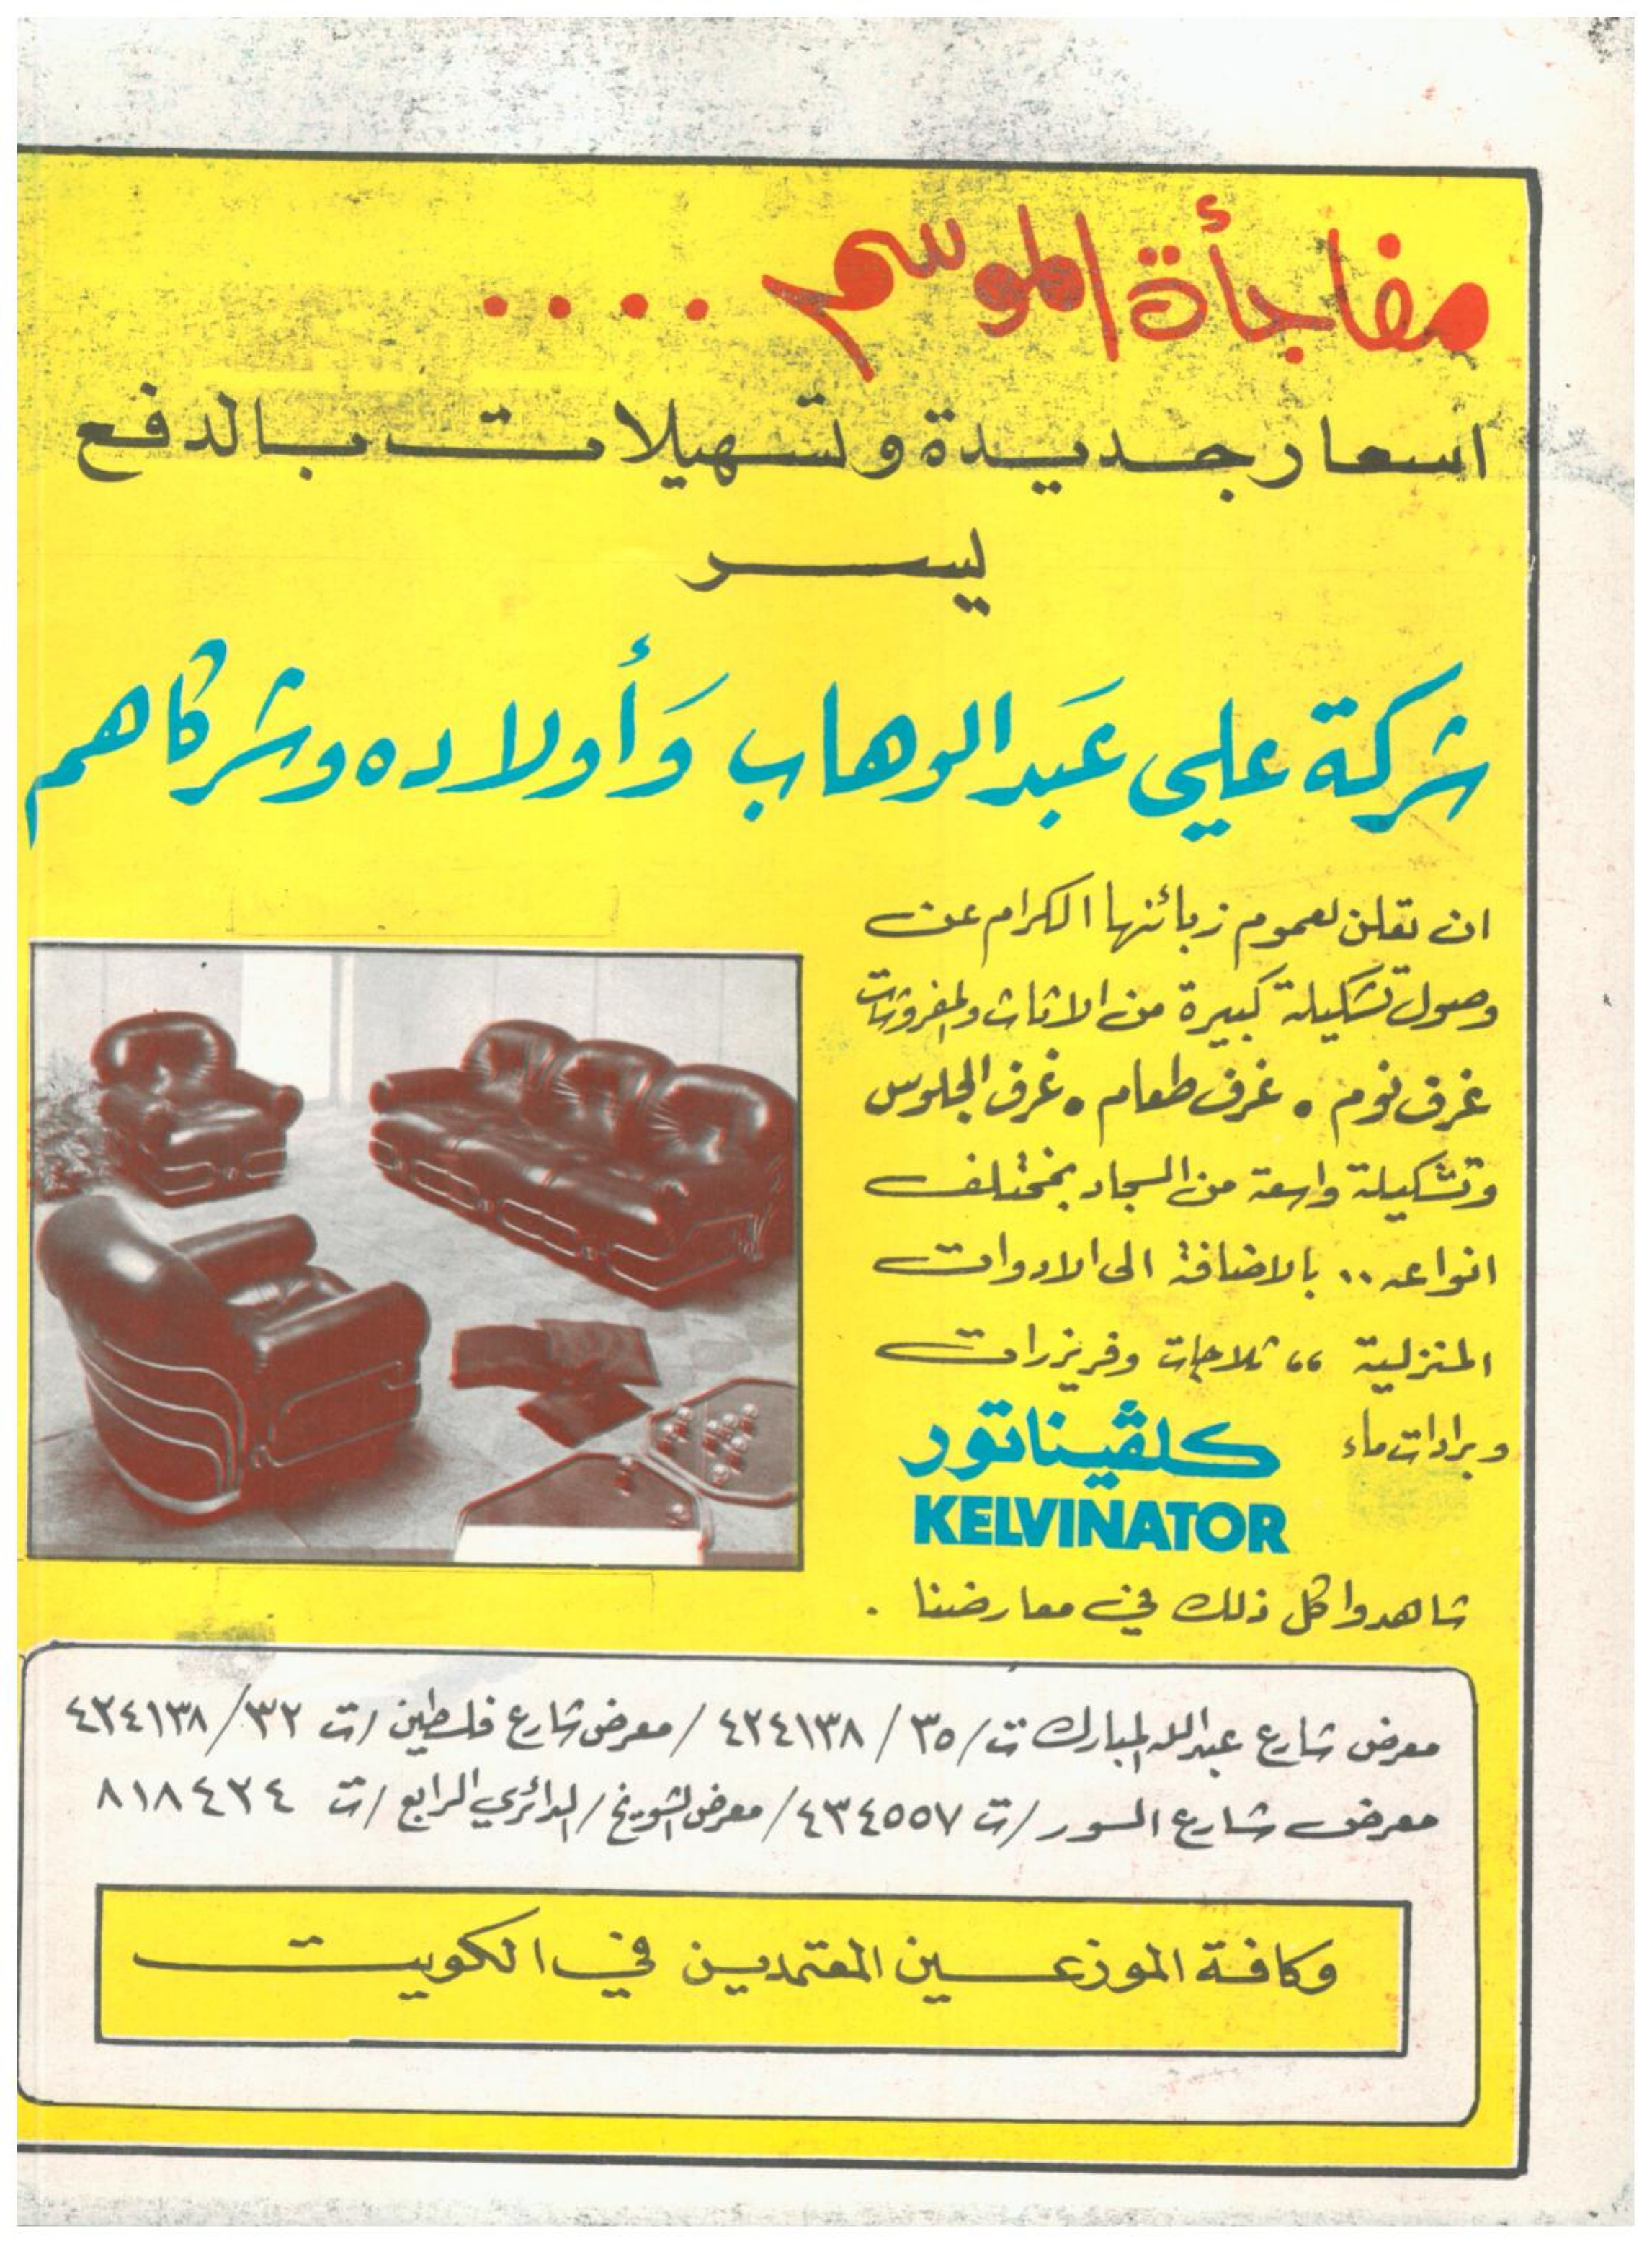 مفاجأة الموسم ....
اسعار جديدة وتسهيلات بالدفع
يسر
شركة علي عبد الوهاب وأولاده وشركاهم
ان تعلن لعموم زبائنها الكرام عن
وصول تشكيلة كبيرة من الاثاث والمفروشات
غرف نوم • غرف طعام • غرف الجلوس
وتشكيلة واسعة من السجاد بمختلف
انواعه .. بالاضافة الى الادوات
المنزلية ،، ثلاجات وفريزرات
وبرادات ماء كلڤيناتور
KELVINATOR
شاهدوا كل ذلك في معارضنا .
معرض شارع عبدالله المبارك ت/ ٣٥ / ٤٢٤١٣٨ / معرض شارع فلسطين / ت ٣٢ / ٤٢٤١٣٨
معرض شارع السور / ت ٤٣٤٥٥٧ / معرض الشويخ / الدائري الرابع / ت ٨١٨٤٢٤
وكافة الموزعين المعتمدين في الكويت